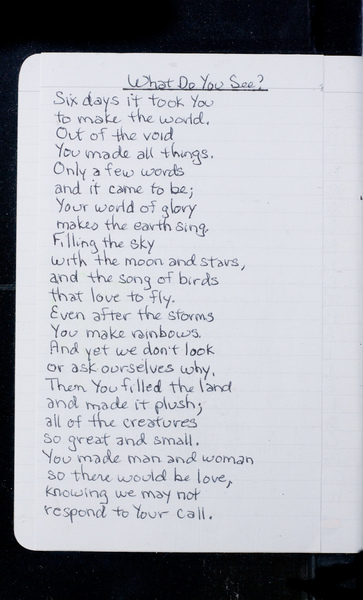 What Do You See?
Six days it took You
to make the world.
Out of the void
You made all things.
Only a few words
and it came to be;
Your world of glory
makes the earth sing.
Filling the sky
with the moon and stars,
and the song of birds
that love to fly.
Even after the storms
You make rainbows.
And yet we don't look
or ask ourselves why.
Then You filled the land
and made it plush;
all of the creatures
so great and small.
You made man and woman
so there would be love,
knowing we may not
respond to Your call.